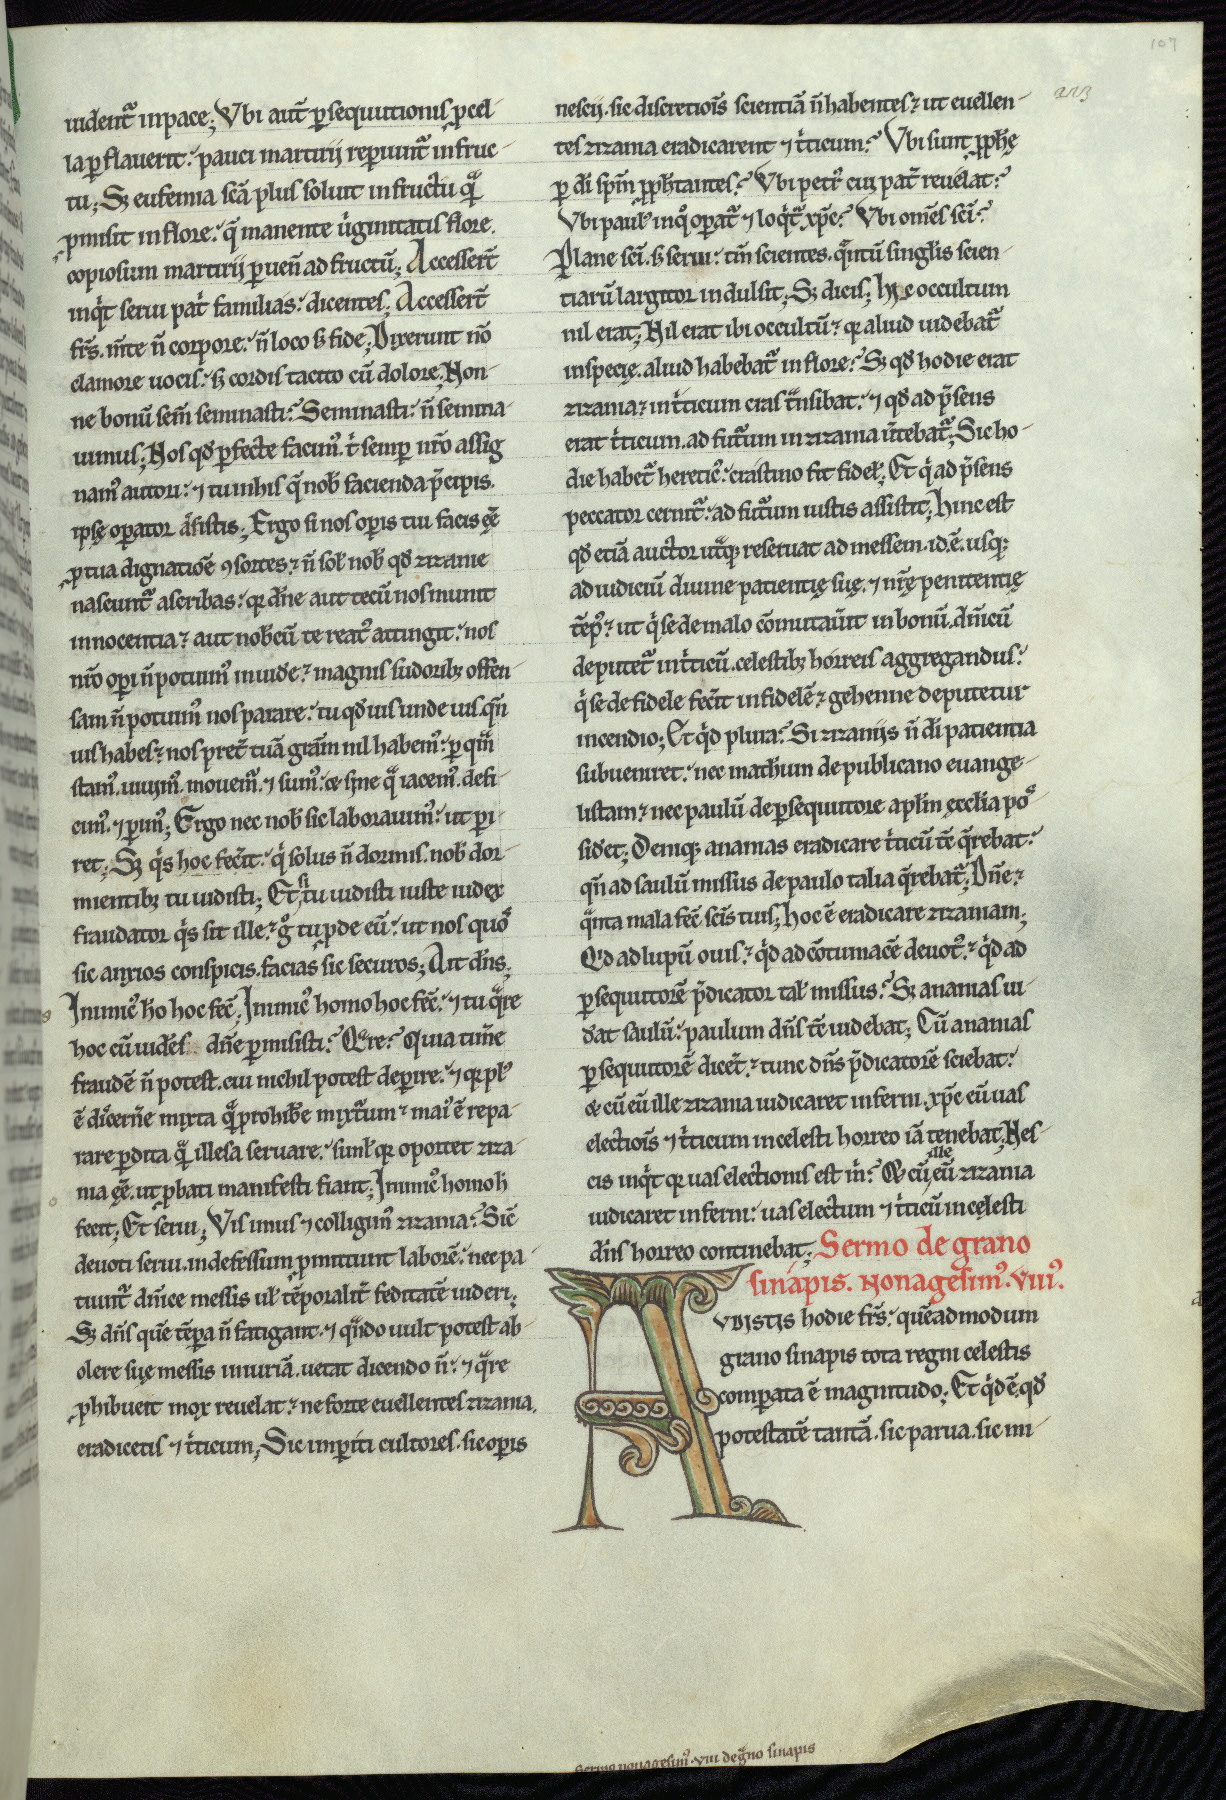 107
213
uident̄ in pace; Vbi aut̄ ꝑsequutionis ꝓcel-
la ꝑflauerit. pauci martirii reperiunt̄ in fruc-
tu; Sꝫ eufemia sc̄a plus soluit in fructu q̄
ꝓmisit in flore. q̄ manente ůginitatis flore.
copiosum martirij ꝑuen̄ ad fructū; Accesser̄t
inqͥt serui pat̄ familias. dicentes; Accesser̄t
fr̄s. m̄te n̄ corpore. n̄ loco sꝫ fide; Dixerunt nō
clamore uocis. sꝫ cordis tacito cū dolore; Non-
ne bonū sem̄ seminasti? Seminasti. n̄ semina-
uimus; Nos qd̄ ꝑfecte facim᷒. t̄ semꝑ nr̄o assig-
nam᷒ autori. ⁊ tu in his q̄ nob̄ facienda p̄cipis.
ipsę oꝑator assistis; Ergo si nos oꝑis tui facis eē
ꝓ tua dignatiōe ꝯsortes. n̄ sol̄ nob̄ qd̄ zizanie
nascunt̄ ascribas. qr dn̄e aut tecū nos munit
innocentia. aut nob̄cū te reat᷒ attingit. nos
nr̄o oꝑi n̄ potuim᷒ inuide. magnis sudoribꝫ offen-
sam n̄ potuim᷒ nos parare. tu qd̄ uis unde uis. qn̄
uis habes. nos p̄t̄ tuā gr̄am nil habem᷒. ꝑ quē
stam᷒. uiuim᷒. mouem᷒. ⁊ sum᷒. & sine q̄ iacem᷒. defi-
cim᷒. ⁊ ꝑim᷒; Ergo nec nob̄ sic laborauim᷒. ut ꝑi-
ret; Sꝫ qͥs hoc fec̄it. qͥ solus n̄ dormis. nob̄ dor-
mientibꝫ tu uidisti; Et si tu uidisti iuste iudex
fraudator qͥs sit ille. gͦ tu ꝓde eū. ut nos quoˢ
sic anxios conspicis. facias sic securos; Ait dn̄s;
Inimic᷒ hō hoc fec̄. Inimic᷒ homo hoc fec̄. ⁊ tu q̄re
hoc cū uid̄es dn̄e ꝑmisisti? Q̄re? Quia time
fraudē n̄ potest. cui nichil potest deꝑire. ⁊ qr pl᷒
ē dic̄ern̄e mixta quā prohib̄e mixtum. mai᷒ ē repa-
rare ꝑdita q̄ illesa seruare. siml̄ qr oportet ziza-
nia eē. ut ꝓbati manifesti fiant; Inimic᷒ homo h̄
fecit; Et serui; Vis imus ⁊ colligim᷒ zizania? Sic̄
deuoti serui. indefessum ꝓmittunt laborē. nec pa-
tiunt̄ dn̄ice messis ul̄ tēporalit̄ feditatē uideri;
Sꝫ dn̄s que tēpa n̄ fatigant. ⁊ qn̄do uult potest ab-
olere suę messis iniuriā. uetat dicendo n̄. ⁊ q̄re
ꝓhibuerit mox reuelat. ne forte euellentes zizania.
eradicetis ⁊ t̄ticum; Sic imꝑiti cultores. sic oꝑis
nescij. sic discretiōis scientiā n̄ habentes. ut euellen-
tes zizania eradicarent ⁊ t̄ticum? Vbi sunt ꝓph̄ę
ꝑ di sp̄m ꝓph̄antes? Vbi petr᷒ cui pat̄ reuelat?
Vbi paul᷒ in qͦ oꝑat̄ ⁊ loqͥt̄ xp̄c? Vbi om̄es sc̄i?
Plane sc̄i. sꝫ serui. tm̄ scientes. quātū singl̄is scien-
tiarū largitor indulsit; Sꝫ dicis; hic occultum
nil erat; Nil erat ibi occultū? qr aliud uidebat̄
in specię. aliud habebat̄ in flore? Sꝫ qd̄ hodie erat
zizania. in t̄ticum cras t̄nsibat. ⁊ qd̄ ad p̄sens
erat t̄ticum. ad fut̄um in zizania ūtebat̄; Sic ho-
die habet̄ heretic᷒. crastino fit fidel̄. Et qͥ ad p̄sens
peccator cernit̄. ad fut̄um iustis assistit; hinc est
qd̄ etiā auctor utūqꝫ reseruat ad messem. id. ē. usqꝫ
ad iudiciū diuine patientię suę. ⁊ nr̄ę penitentię
tēp᷒. ut qͥ se de malo cōmutaūit in bonū. dn̄icū
deputet̄ in t̄ticū. celestibꝫ horreis aggregandus.
qͥ se de fidele fec̄it infidelē. gehenne deputetur
incendio; Et qͥd plura? Si zizanijs n̄ di patientia
subueniret. nec matheum de publicano euange-
listam. nec paulū de ꝑsequutore apl̄m ęcclia pos-
sid̄et; Denique ananias eradicare t̄ticū tē q̄rebat.
qn̄ ad saulū missus de paulo talia q̄rebat̄; Dn̄e.
quāta mala fec̄ sc̄is tuis; hoc ē eradicare zizaniam;
Qd ad lupū ouis. qͥd ad cōtumacē deuot᷒. qͥd ad
ꝑsequutorē p̄dicator tal̄ missus? Sꝫ ananias ui-
d̄at saulū. paulum dn̄s tē uidebat; Cū ananias
ꝑsequutorē dicēt. tunc dn̄s p̄dicatorē sciebat.
& cū eū ille zizania iudicaret inferni. xp̄c eū uas
electiōis ⁊ t̄ticum in celesti horreo iā tenebat. Nes-
cis inqͥt qr uas electionis est m̄? & cū ille eū zizania
iudicaret inferni. uas electum ⁊ t̄ticū in cęlesti
dn̄s horreo continebat; Sermo de grano
sinapis. Nonagesim᷒. viii᷒.
AVDISTIS hodie fr̄s. quēadmodum
grano sinapis tota regni celestis
comꝑata ē magnitudo; Et qͥd ē. qd̄
potestatē tantā. sic parua. sic mi-
Sermo nonagesim᷒. viii de ḡno sinapis